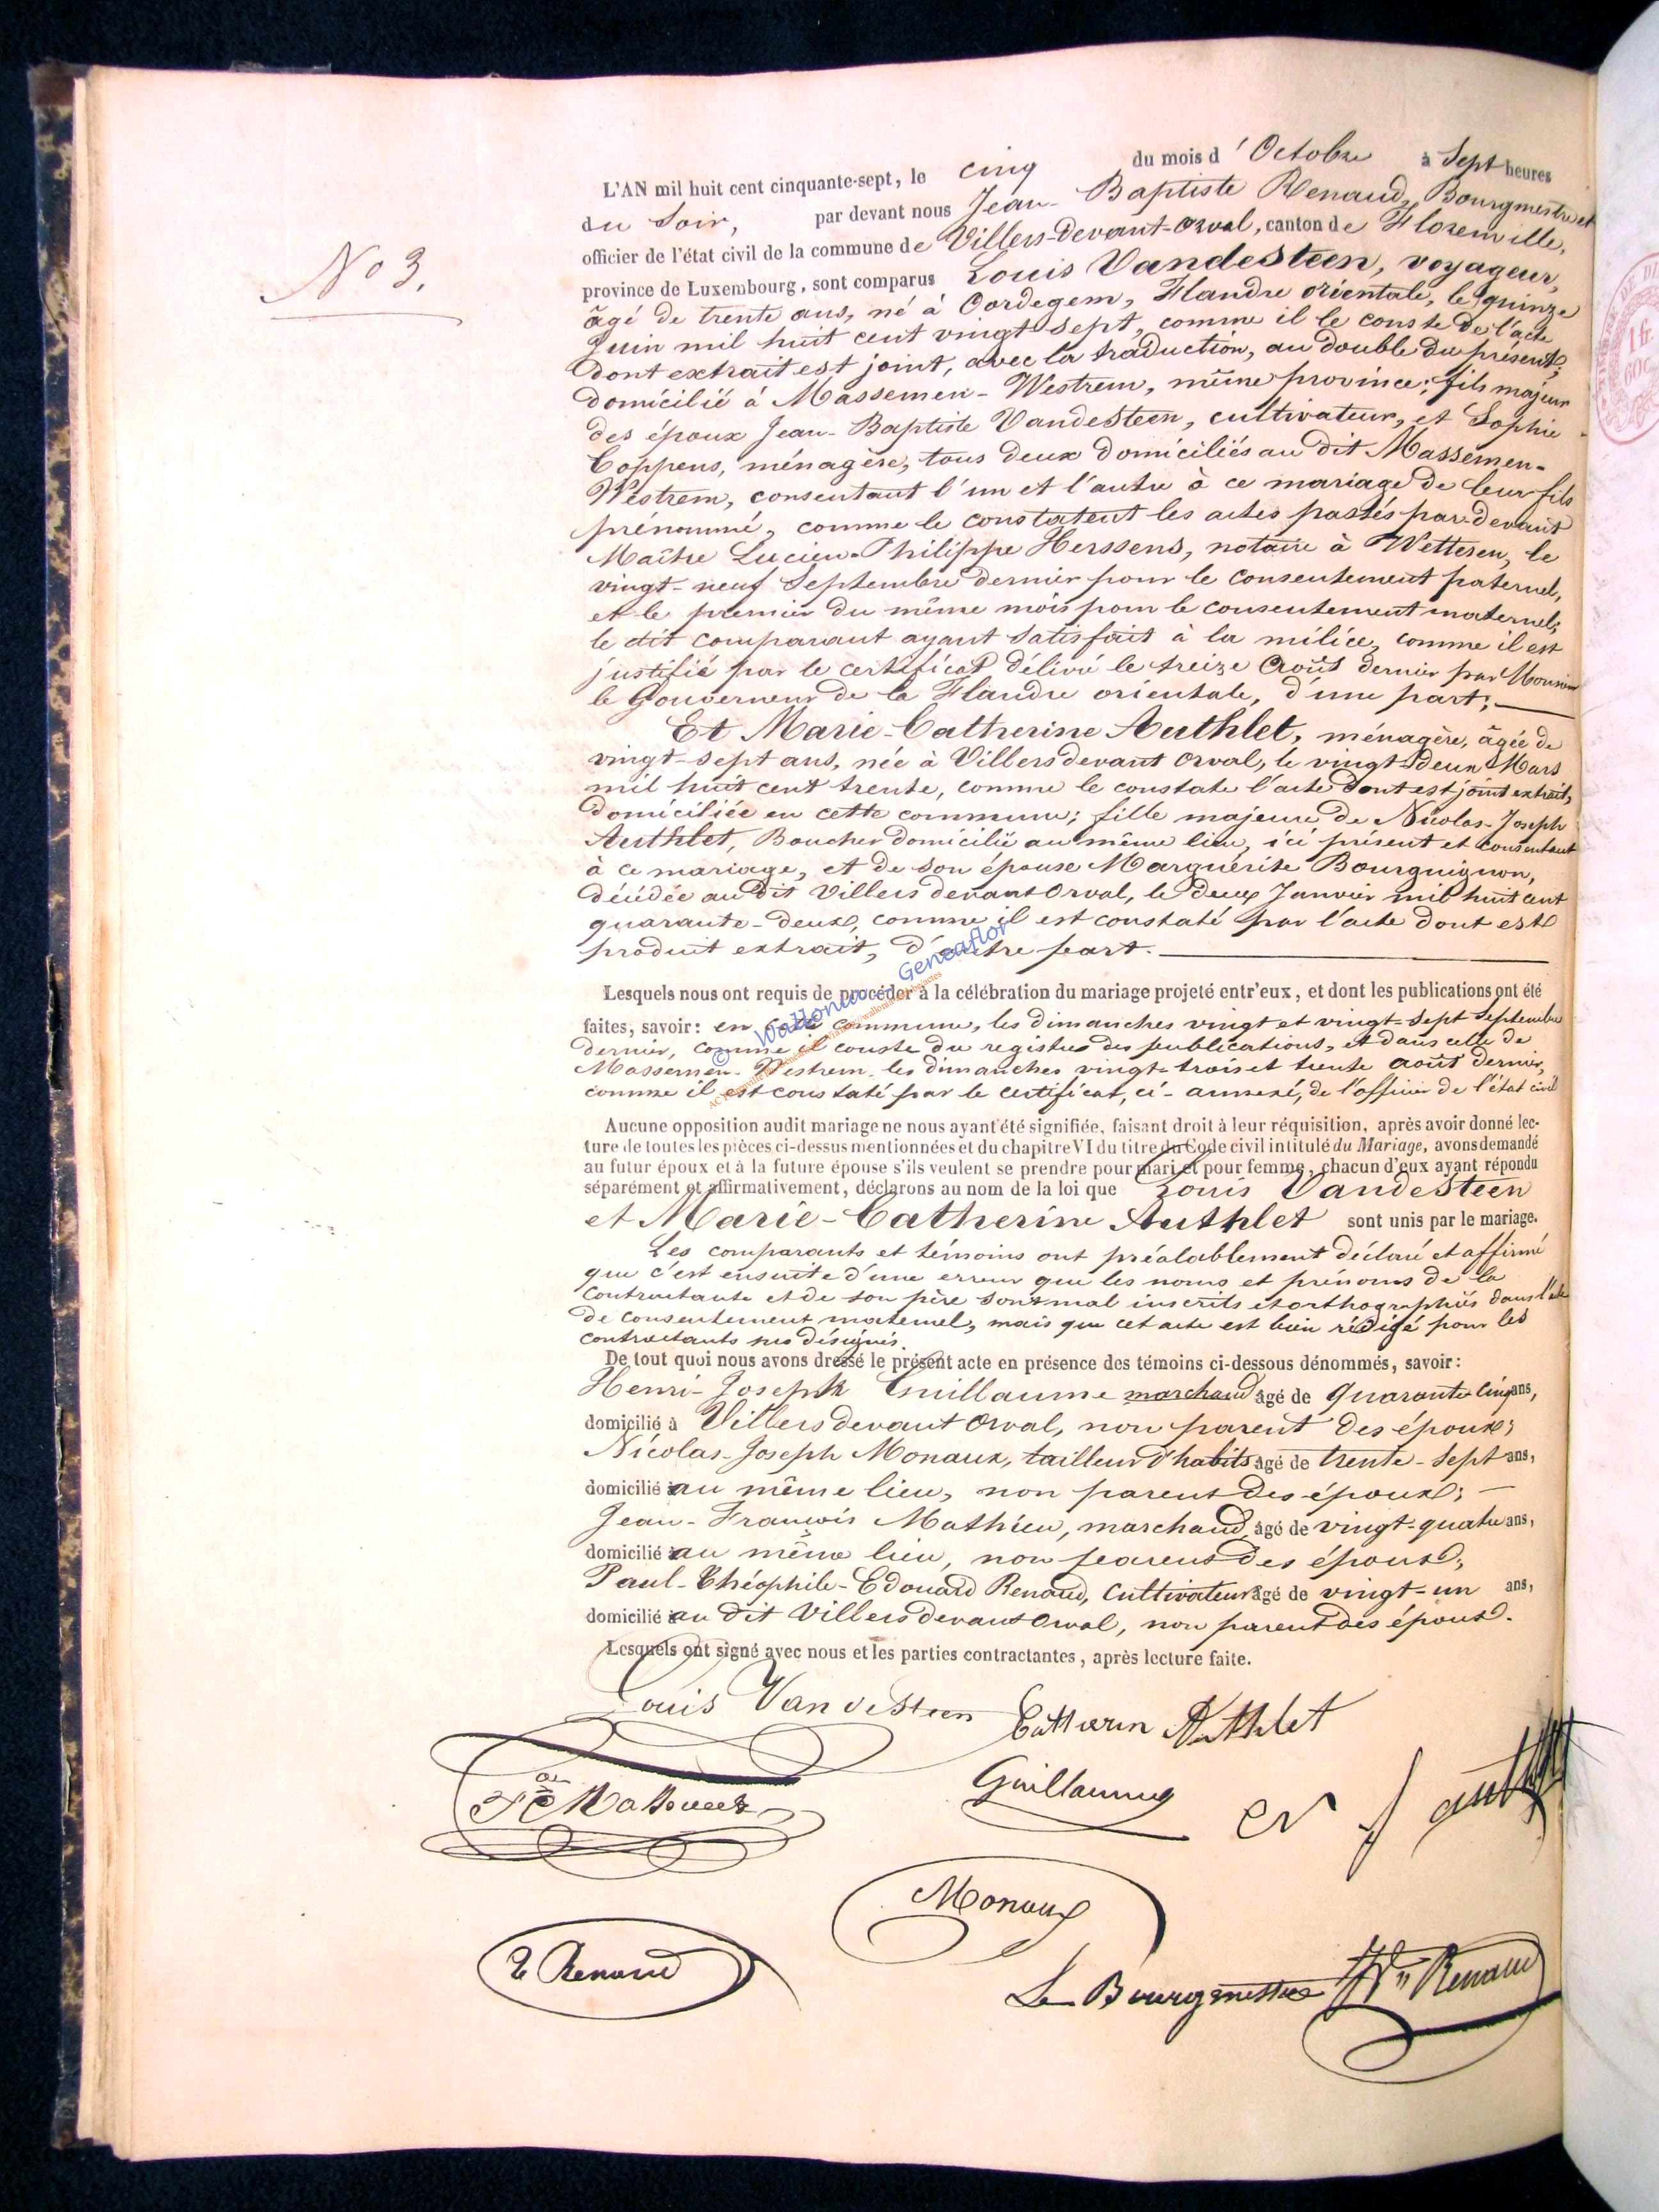 N° 3.
L'AN mil huit cent cinquante-sept, le cinq du mois d'Octobre à Sept heures
du Soir, par devant nous Jean-Baptiste Renaud, Bourgmestre et
officier de l'état civil de la commune de Villers-devant-Orval, canton de Florenville,
province de Luxembourg, sont comparus Louis Vandesteen, voyageur,
âgé de trente ans, né à Oordegem, Flandre orientale, le quinze
Juin mil huit cent vingt-sept, comme il le conste de l'acte
dont extrait est joint, avec la traduction, au double du présent;
domicilié à Massemen-Westrem, même province; fils majeur
des époux Jean-Baptiste Vandesteen, cultivateur, et Sophie
Coppens, ménagère, tous deux domiciliés au dit Massemen-
Westrem, consentant l'un et l'autre à ce mariage de leur fils
prénommé, comme le constatent les actes passés par-devant
Maître Lucien-Philippe Herssens, notaire à Wetteren, le
vingt-neuf Septembre dernier pour le consentement paternel,
et le premier du même mois pour le consentement maternel;
le dit comparant ayant satisfait à la milice, comme il est
justifié par le certificat délivré le treize Août dernier par Monsieur
le Gouverneur de la Flandre orientale, d'une part;
Et Marie-Catherine Authlet, ménagère, âgée de
vingt-sept ans, née à Villers devant Orval, le vingt-deux Mars
mil huit cent trente, comme le constate l'acte dont est joint extrait,
domiciliée en cette commune; fille majeure de Nicolas-Joseph
Authlet, Boucher domicilié au même lieu, ici présent et consentant
à ce mariage, et de son épouse Marguerite Bourguignon,
décédée au dit Villers devant Orval, le deux Janvier mil huit cent
quarante-deux, comme il est constaté par l'acte dont est
produit extrait, d'autre part.
Lesquels nous ont requis de procéder à la célébration du mariage projeté entr'eux, et dont les publications ont été
faites, savoir: en cette commune, les dimanches vingt et vingt-sept Septembre
dernier, comme il conste du registre des publications, et dans celle de
Massemen-Westrem, les dimanches vingt-trois et trente août dernier,
comme il est constaté par le certificat, ci-annexé, de l'officier de l'état civil
© Wallonica - Geneaflor
Aucune opposition audit mariage ne nous ayant été signifiée, faisant droit à leur réquisition, après avoir donné lec-
ture de toutes les pièces ci-dessus mentionnées et du chapitre VI du titre du Code civil intitulé du Mariage, avons demandé
au futur époux et à la future épouse s'ils veulent se prendre pour mari et pour femme, chacun d'eux ayant répondu
séparément et affirmativement, déclarons au nom de la loi que Louis Vandesteen
et Marie-Catherine Authlet sont unis par le mariage.
Les comparants et témoins ont préalablement déclaré et affirmé
que c'est ensuite d'une erreur que les noms et prénoms de la
contractante et de son père sont mal inscrits et orthographiés dans l'acte
de consentement maternel, mais que cet acte est bien rédigé pour les
contractants sus désignés.
De tout quoi nous avons dressé le présent acte en présence des témoins ci-dessous dénommés, savoir:
Henri-Joseph Guillaume marchand âgé de quarante cinq ans,
domicilié à Villers devant Orval, non parent des époux;
Nicolas-Joseph Monaux, tailleur d'habits âgé de trente-sept ans,
domicilié au même lieu, non parent des époux;
Jean-François Mathieu, marchand, âgé de vingt-quatre ans,
domicilié au même lieu, non parent des époux;
Paul-Théophile-Edouard Renaud, Cultivateur âgé de vingt-un ans,
domicilié au dit Villers devant Orval, non parent des époux.
Lesquels ont signé avec nous et les parties contractantes, après lecture faite.
Louis Vandesteen Catherin Authlet
Guillaume
Monaux
E Renaud
Le Bourgmestre Renaud